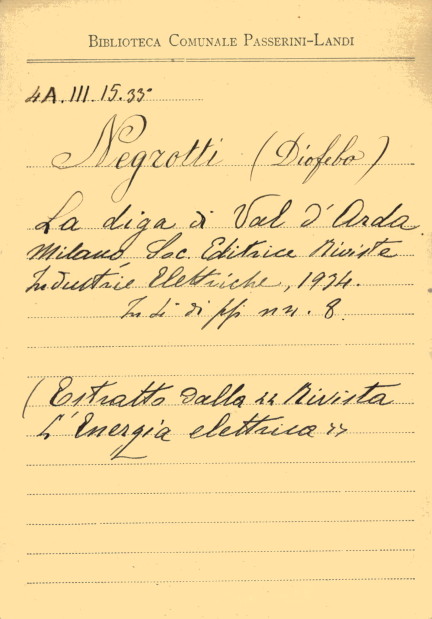 BIBLIOTECA COMUNALE PASSERINI-LANDI
4A. III. 15. 35
Negrotti (Diofebo)
La diga di Val d'Arda.
Milano Soc. Editrice Riviste
Industrie Elettriche, 1934.
In di pp nn. 8
(Estratto dalla "Rivista
L'Energia elettrica"